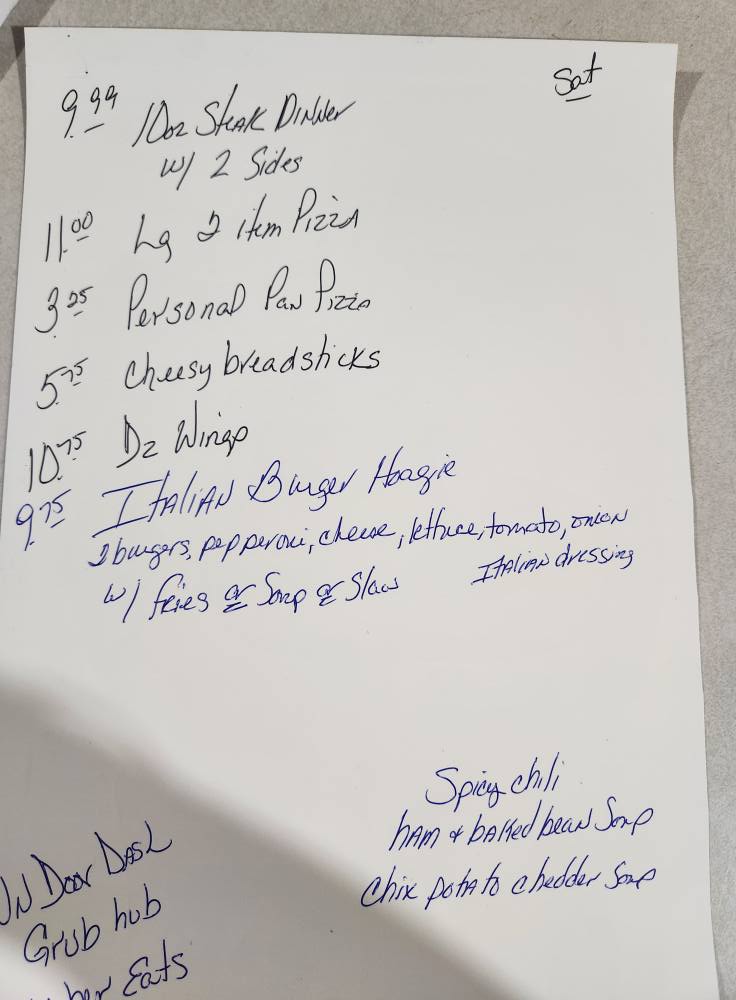 Sat
9.99 10oz Steak Dinner
w/ 2 Sides
11.00 Lg 2 item Pizza
3.25 Personal Pan Pizza
5.75 Cheesy breadsticks
10.75 Dz Wings
9.75 Italian Burger Hoagie
2 burgers, pepperoni, cheese, lettuce, tomato, onion
Italian dressing
w/ fries or Soup or Slaw
Spicy chili
ham & baked bean Soup
Chix potato chedder Soup
ON Door Dash
Grub hub
Uber Eats